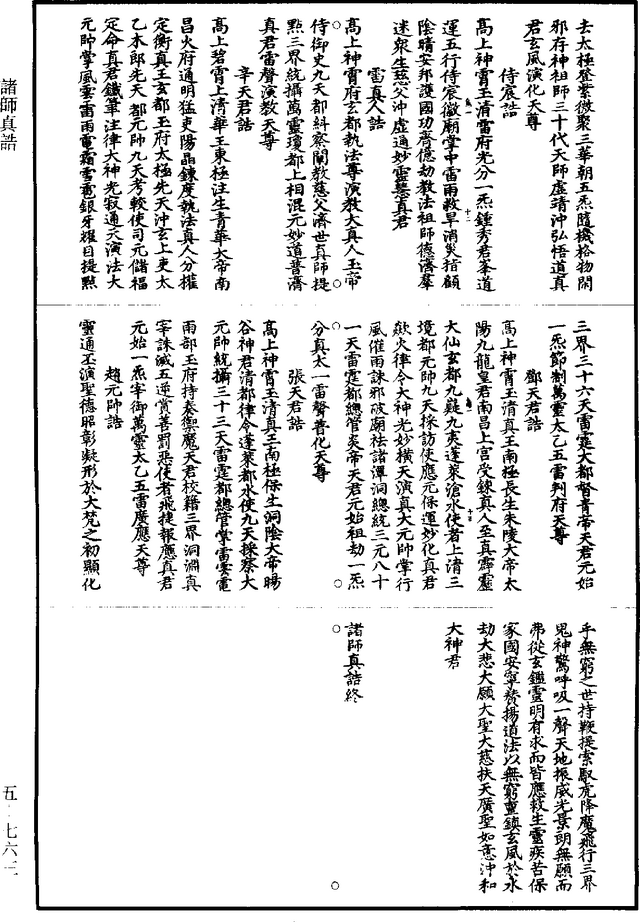 去太極登紫微聚三華朝五炁隨機格物闢
邪存神祖師三十代天師虛靖沖弘悟道真
君玄風演化天尊
侍宸誥
高上神霄玉清雷府光分一炁鍾秀君峯道
運五行侍宸徽廟掌中雷雨救旱消災指顧
陰晴安邦護國功齊億劫教法祖師德濟羣
迷衆生慈父沖虛通妙靈真君
雷真人誥
高上神霄府玄都執法尊演教大真人玉帝
侍御史九天都糾察闡教慈父濟世真師提
點三界統攝萬靈瓊都上相混元妙道普濟
真君雷聲演教天尊
辛天君誥
高上碧霄上清華王東極注生青華大帝南
昌火府通明猛吏陽晶鍊度執法真人分權
定衡真王玄都玉府太極先天沖玄上吏太
乙木郎先天都元帥九天考較使司元儲福
定命真君鐵筆注律大神光寂通交演法大
元帥掌風雲雷雨電霜雪雹銀牙耀目提點
三界三十六天雷霆大都督青帝天君元始
一炁節制萬靈太乙五雷判府天尊
鄧天君誥
高上神霄玉清真王南極長生朱陵大帝太
陽九龍皇君南昌上宮受鍊真人至真霹靂
大仙玄都九嶷九夷蓬萊滄水使者上清三
境都元帥九天採訪使應元保運妙化真君
欻火律令大神光妙橫天演真大元帥掌行
風催雨誅邪破廟祛諸潭洞總統三元八十
一天雷霆都總管炎帝天君元始祖劫一炁
分真太一雷聲普化天尊
張天君誥
高上神霄玉清真王南極保生洞陰大帝暘
谷神君清都律令蓬萊都水使九天採祭大
元帥統攝三十三天雷霆都總管掌雷雲電
雨部玉府持奏御魔天君校籍三界洞淵真
宰誅滅五逆賞善罰惡使者飛捷報應真君
元始一炁宰御萬靈太乙五雷廣應天尊
趙元帥誥
靈通丕演聖德昭彰凝形於大梵之初顯化
乎無窮之世持鞭提索馭虎降魔飛行三界
鬼神驚呼吸一聲天地振威光景朗無願而
弗從玄鑑靈明有求而皆應救生靈疾苦保
家國安寧贊揚道法以無窮靈鎮玄風於永
劫大悲大願大聖大慈扶天廣聖如意沖和
大神君
諸師真誥終
諸師真誥
五·七六三